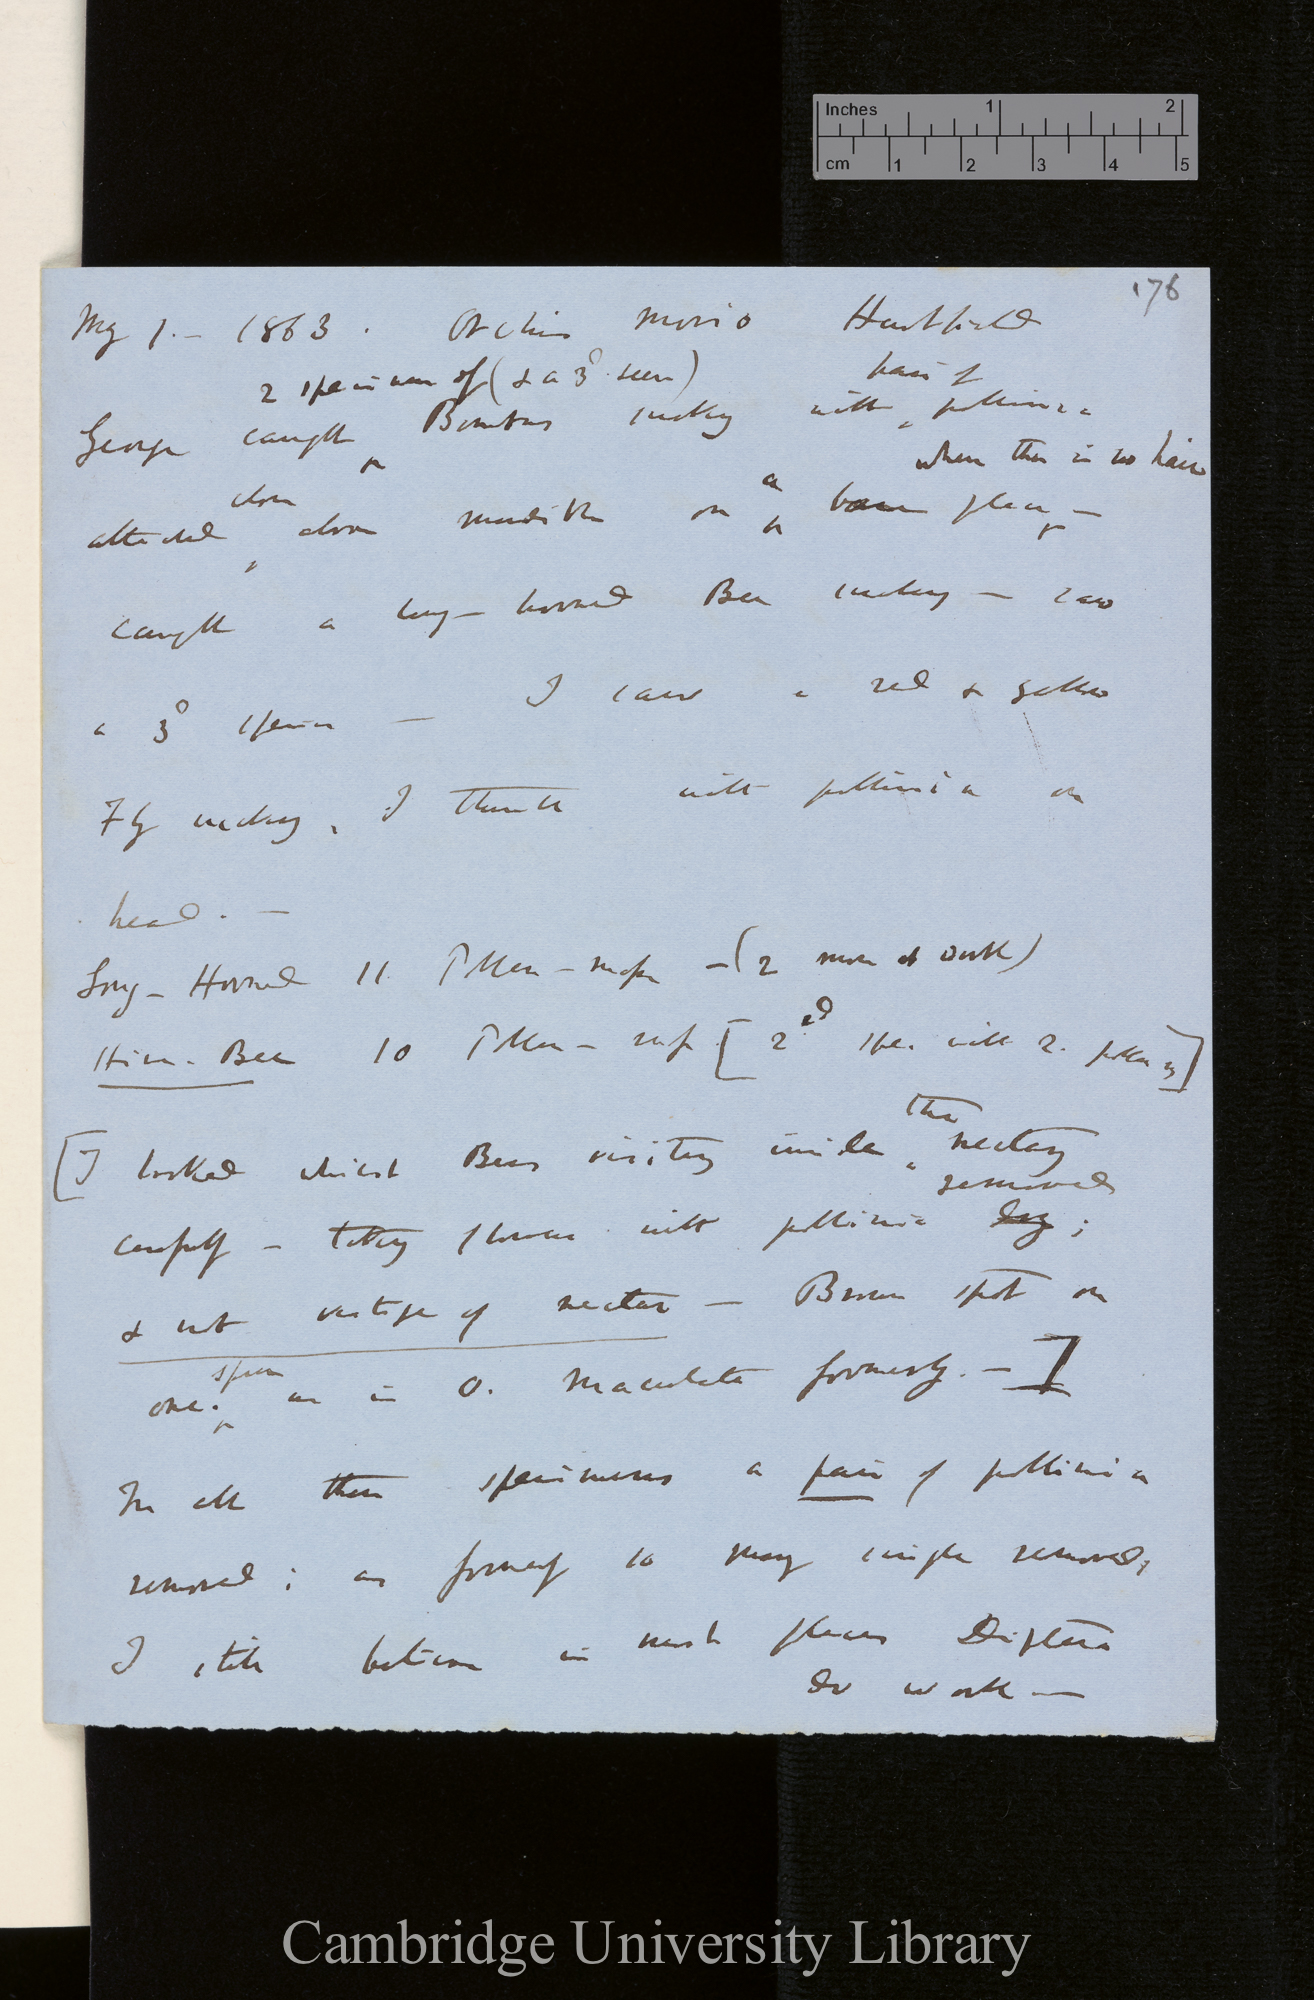 Inches 1 2
cm 1 2 3 4 5
176
May 1. — 1863. Orchis morio Hartfield
2 specimens of (& a 3d seen) pair of
George caught Bombus sucking with pollinia
where there is no hair
attached close above mandible on a bare place —
caught a long-horned Bee sucking — saw
a 3d specimen — I saw a red & yellow
Fly sucking, I think with pollinia on
head. —
Long-Horned 11. Pollen-masses — (2 more at work)
Hive-Bee 10 Pollen-masses [2nd spec. with 2. pollen m]
the
[I looked whilst Bees visiting inside nectary
removed
carefully — taking flowers with pollinia ;
& not vestige of nectar — Brown spot on
specimen
one. as in O. maculata formerly. —]
In all these specimens a pair of pollinia
removed; as formerly so many single removed,
I still believe in most places Diptera
do work —
Cambridge University Library